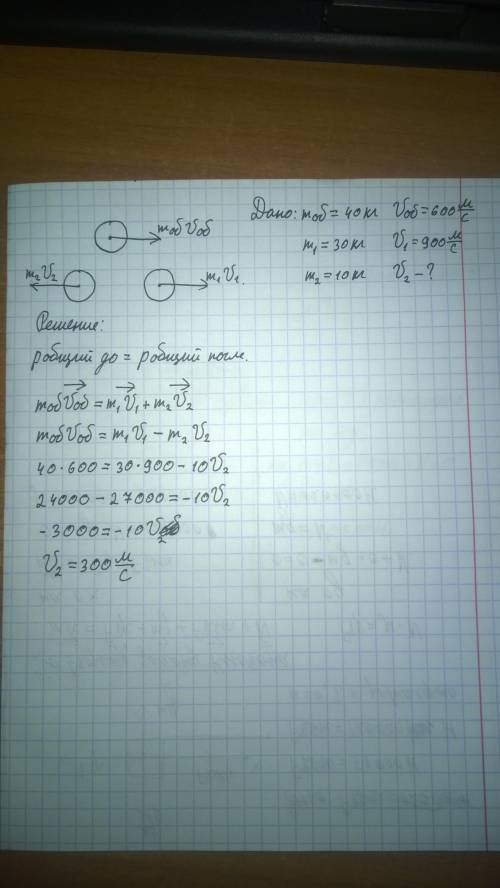 Дано: mоб = 40 кг Vоб = 600 м/с
m₁ = 30 кг V₁ = 900 м/с
m₂ = 10 кг V₂ - ?
mоб Vоб
m₂V₂
m₁V₁.
Решение:
pобщий до = pобщий посл.
mоб V⃗об = m₁V⃗₁ + m₂V⃗₂
mобVоб = m₁V₁ - m₂V₂
40·600 = 30·900 - 10V₂
24000 - 27000 = -10V₂
-3000 = -10V₂
V₂ = 300 м/с